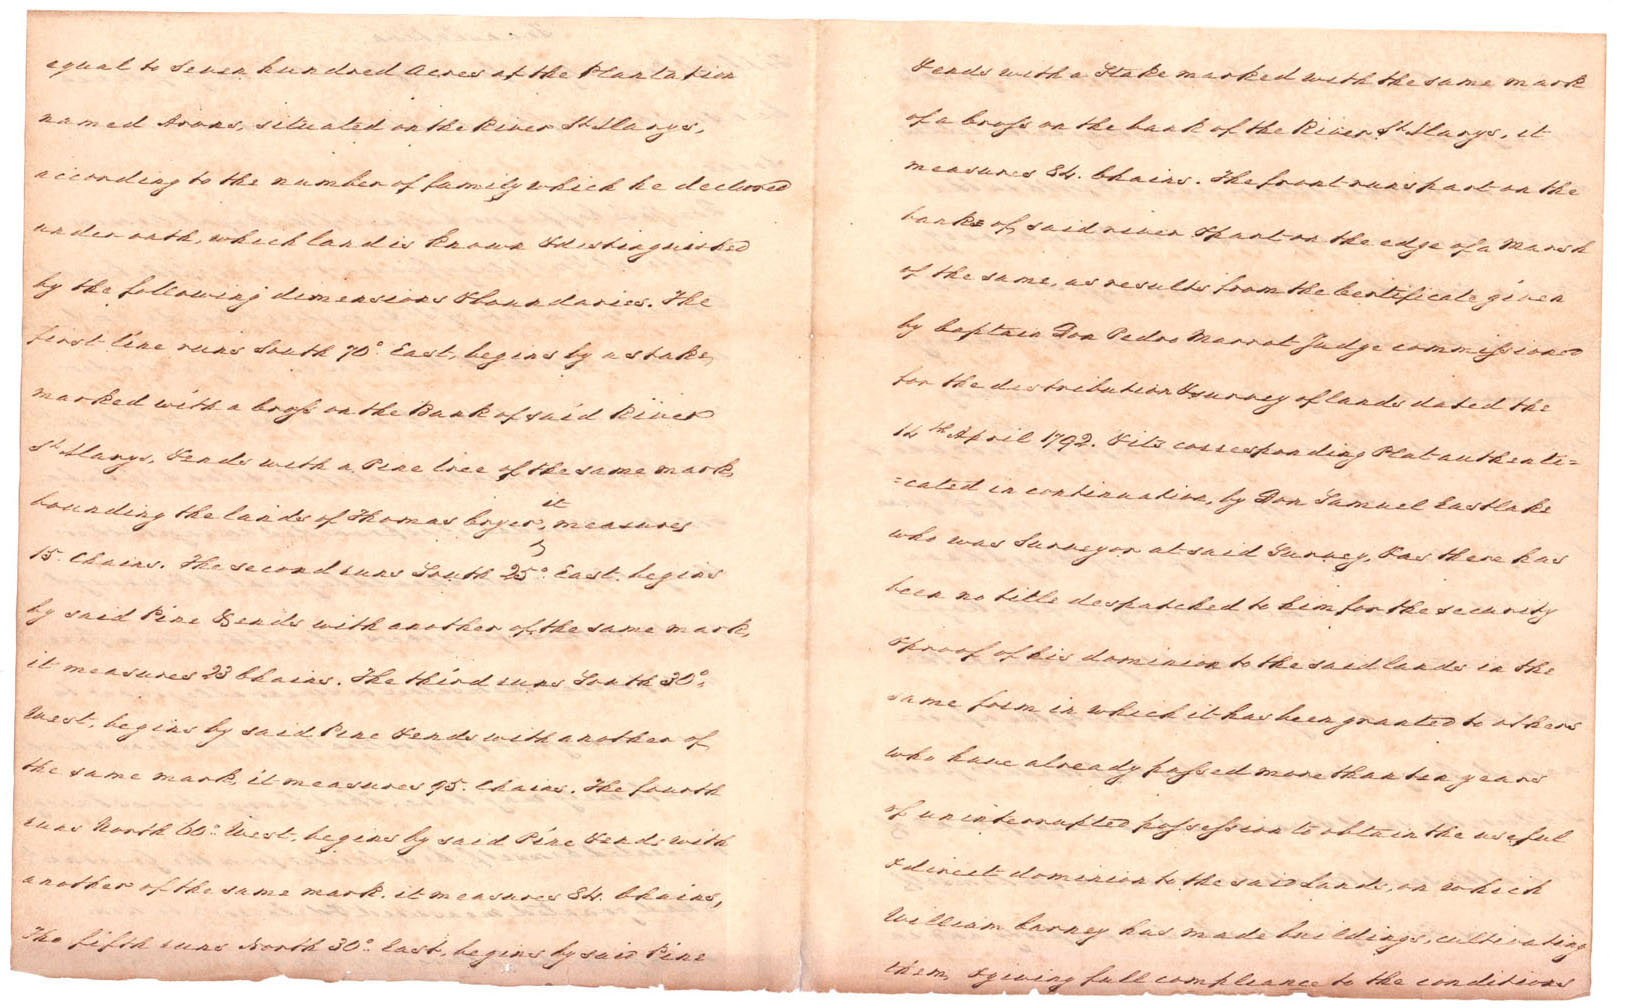 equal to Seven hundred Acres at the Plantation
named Arons, situated on the River St. Marys,
according to the number of family which he declared
under oath, which land is known & distinguished
by the following demensions & boundaries. The
first line runs South 70° East, begins by a stake,
marked with a Cross on the Bank of said River
St. Marys, & ends with a Pine tree of the same mark,
bounding the lands of Thomas Cryer, it measures
15. Chains. The second runs South 25° East. begins
by said Pine & ends with another of the same mark,
it measures 23 Chains. The third runs South 30°.
West, begins by said Pine & ends with another of
the same mark, it measures 95. Chains. The fourth
runs North 60° West, begins by said Pine & ends with
another of the same mark. it measures 84. Chains,
The fifth runs North 30° East, begins by said Pine
& ends with a Stake marked with the same mark
of a Cross on the bank of the River St. Marys, it
measures 84. Chains. The front runs part on the
bank of said river & part on the edge of a Marsh
of the same, as results from the Certificate given
by Captain Don Pedro Marrot Judge commissioned
for the distribution & survey of lands dated the
14th April 1792. & its corresponding Plat authenti=
=cated in continuation, by Don Samuel Eastlake
who was Surveyor at said Survey, & as there has
been no title despatched to him for the security
& proof of his dominion to the said lands in the
same form in which it has been granted to others
who have already passed more than ten years
of uninterrupted possession to obtain the useful
& direct dominion to the said Lands, on which
William Carney has made buildings, cultivating
them, & giving full compliance to the conditions